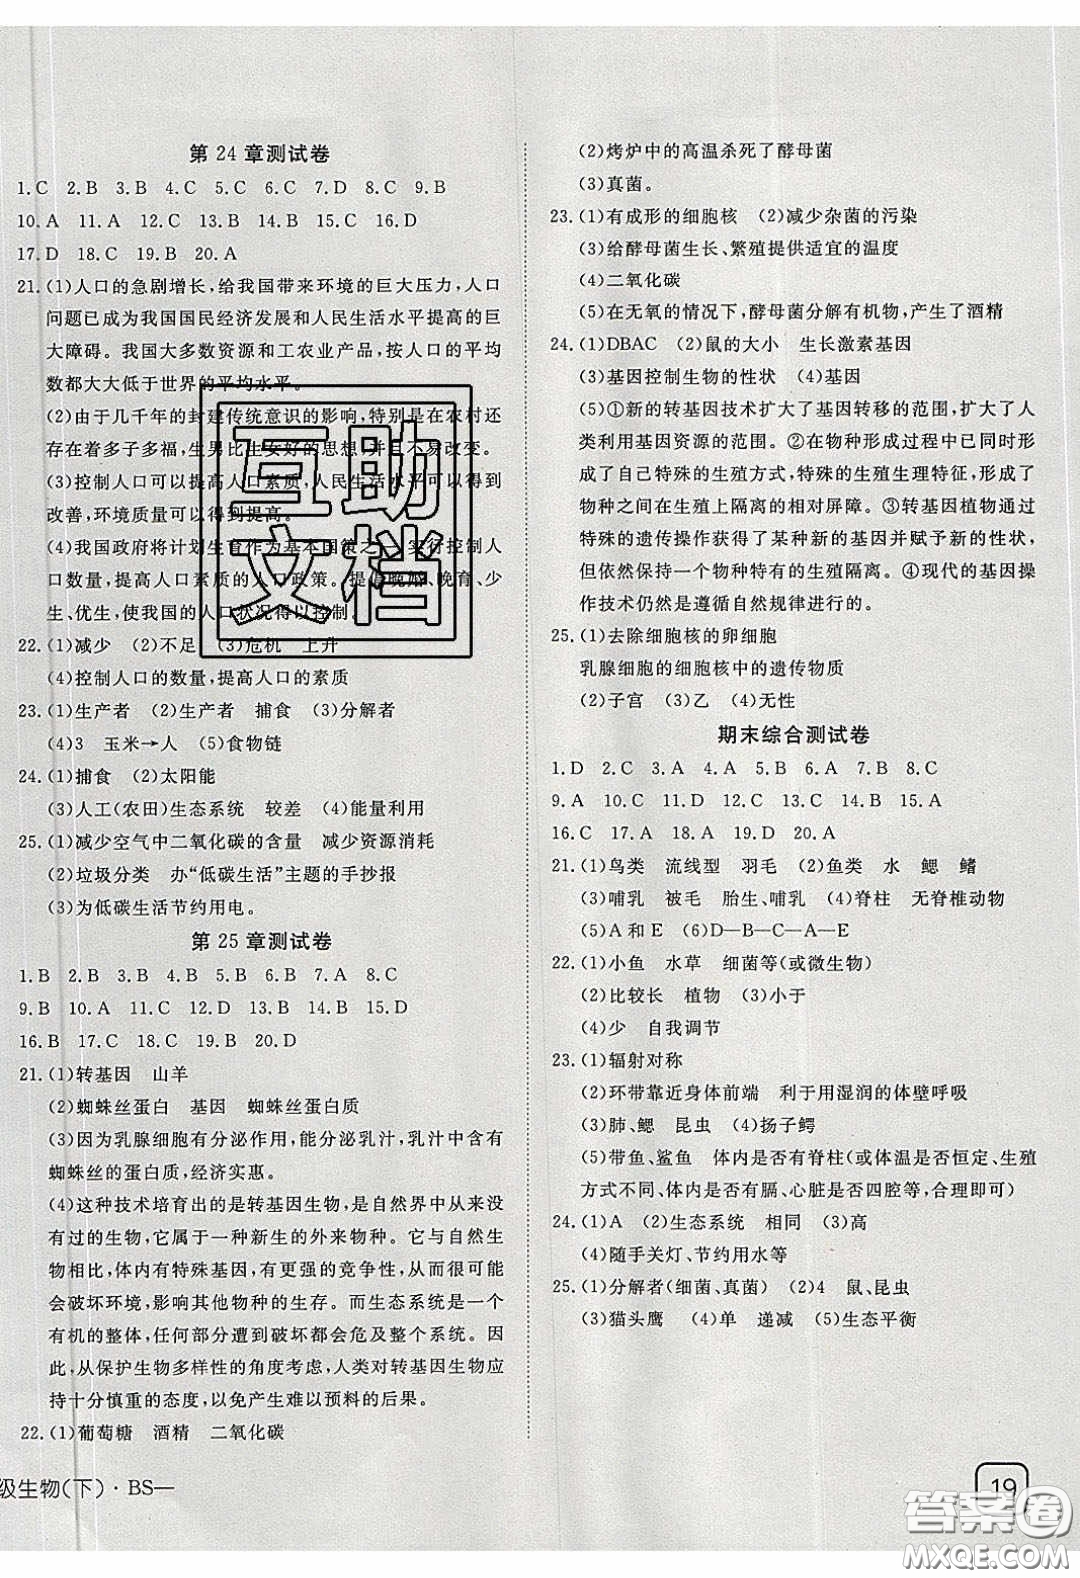 第24章测试卷
1.C 2.B 3.B 4.C 5.A 6.C 7.D 8.C 9.B
10.A 11.A 12.C 13.A 14.C 15.D 16.D
17.D 18.C 19.B 20.A
21.(1)人口的急剧增长,给我国带来环境的巨大压力,人口
问题已成为我国国民经济发展和人民生活水平提高的巨
大障碍。我国大多数资源和工农业产品,按人口的平均
数都大大低于世界的平均水平。
(2)由于几千年的封建传统意识的影响,特别是在农村还
存在着多子多福,生男比生女好的思想,并且不易改变。
(3)控制人口可以提高人口素质,人民生活水平可以得到
改善,环境质量可以得到提高。
(4)我国政府将计划生育作为基本国策之一,实行控制人
口数量,提高人口素质的人口政策。提倡晚婚、晚育、少
生、优生,使我国的人口状况得以控制。
22.(1)减少 (2)不足 (3)危机 上升
(4)控制人口的数量,提高人口的素质
23.(1)生产者 (2)生产者 捕食 (3)分解者
(4)3 玉米→人 (5)食物链
24.(1)捕食 (2)太阳能
(3)人工(农田)生态系统 较差 (4)能量利用
25.(1)减少空气中二氧化碳的含量 减少资源消耗
(2)垃圾分类 办“低碳生活”主题的手抄报
(3)为低碳生活节约用电。
第25章测试卷
1.B 2.B 3.D 4.A 5.B 6.B 7.A 8.C
9.B 10.A 11.C 12.D 13.B 14.C 15.D
16.B 17.C 18.C 19.B 20.D
21.(1)转基因 山羊
(2)蜘蛛丝蛋白 基因 蜘蛛丝蛋白质
(3)因为乳腺细胞有分泌作用,能分泌乳汁,乳汁中含有
蜘蛛丝的蛋白质,经济实惠。
(4)这种技术培育出的是转基因生物,是自然界中从来没
有过的生物,它属于一种新生的外来物种。它与自然生
物相比,体内有特殊基因,有更强的竞争性,从而很可能
会破坏环境,影响其他物种的生存。而生态系统是一个
有机的整体,任何部分遭到破坏都会危及整个系统。因
此,从保护生物多样性的角度考虑,人类对转基因生物应
持十分慎重的态度,以免产生难以预料的后果。
22.(1)葡萄糖 酒精 二氧化碳
级生物(下)·BS—
(2)烤炉中的高温杀死了酵母菌
(3)真菌。
23.(1)有成形的细胞核 (2)减少杂菌的污染
(3)给酵母菌生长、繁殖提供适宜的温度
(4)二氧化碳
(5)在无氧的情况下,酵母菌分解有机物,产生了酒精
24.(1)DBAC (2)鼠的大小 生长激素基因
(3)基因控制生物的性状 (4)基因
(5)①新的转基因技术扩大了基因转移的范围,扩大了人
类利用基因资源的范围。②在物种形成过程中已同时形
成了自己特殊的生殖方式,特殊的生殖生理特征,形成了
物种之间在生殖上隔离的相对屏障。③转基因植物通过
特殊的遗传操作获得了某种新的基因并赋予新的性状,
但依然保持一个物种特有的生殖隔离。④现代的基因操
作技术仍然是遵循自然规律进行的。
25.(1)去除细胞核的卵细胞
乳腺细胞的细胞核中的遗传物质
(2)子宫 (3)乙 (4)无性
期末综合测试卷
1.D 2.C 3.A 4.A 5.B 6.A 7.B 8.C
9.A 10.C 11.D 12.C 13.C 14.B 15.A
16.C 17.A 18.A 19.D 20.A
21.(1)鸟类 流线型 羽毛 (2)鱼类 水 鳃 鳍
(3)哺乳 被毛 胎生、哺乳 (4)脊柱 无脊椎动物
(5)A和E (6)D—B—C—A—E
22.(1)小鱼 水草 细菌等(或微生物)
(2)比较长 植物 (3)小于
(4)少 自我调节
23.(1)辐射对称
(2)环带靠近身体前端 利于用湿润的体壁呼吸
(3)肺、鳃 昆虫 (4)扬子鳄
(5)带鱼、鲨鱼 体内是否有脊柱(或体温是否恒定、生殖
方式不同、体内是否有膈、心脏是否四腔等,合理即可)
24.(1)A (2)生态系统 相同 (3)高
(4)随手关灯、节约用水等
25.(1)分解者(细菌、真菌) (2)4 鼠、昆虫
(3)猫头鹰 (4)单 递减 (5)生态平衡
19
互助
文档
答案圈
MXQE.COM